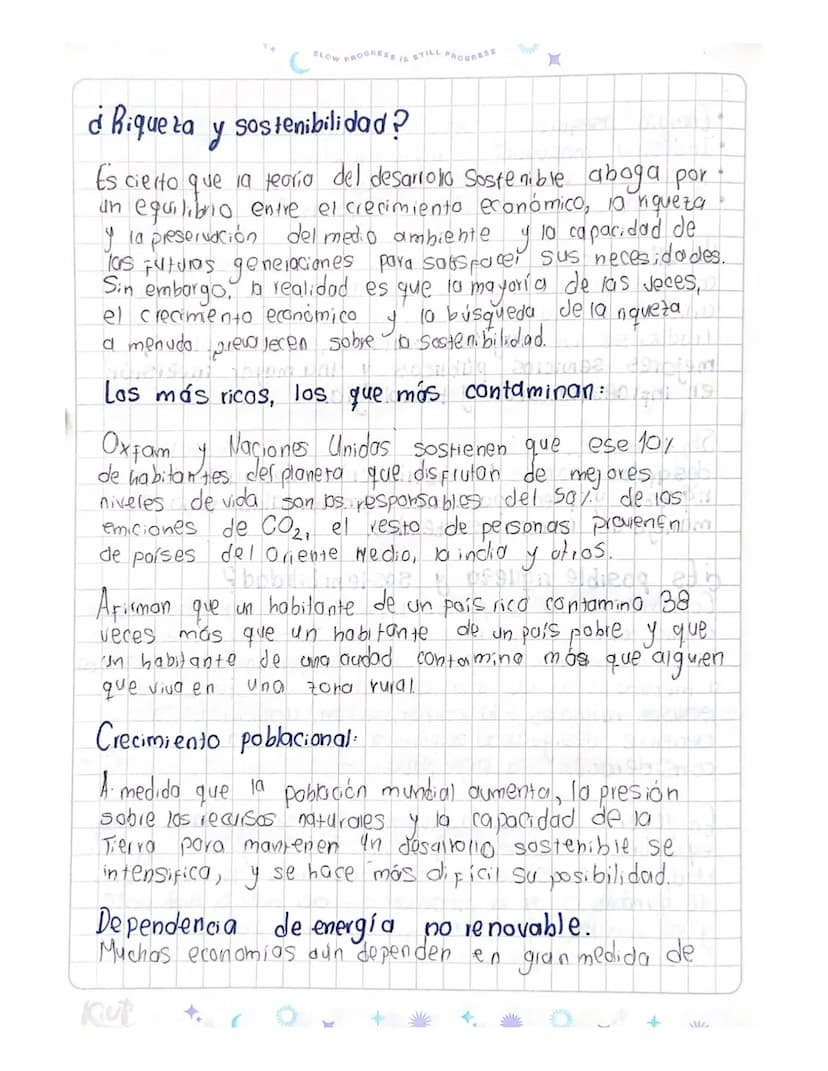 SLOW PROGRESS IS STILL PROGRESS
¿Riqueza y sostenibilidad?
Es cierto que la teoría del desarrollo sostenible aboga por
un equilibrio entre el crecimiento económico, la riqueza
y la preservación del medio ambiente y la capacidad de
las futuras generaciones para satisfacer sus necesidades.
Sin embargo, la realidad es que la mayoría de las veces,
el crecimento económico y la búsqueda de la riqueza
a menudo prevalecen sobre la sostenibilidad.
Los más ricos, los que más contaminan:
Oxfam y Naciones Unidas sostienen que ese 10%
de habitantes del planeta que disfrutan de mejores
niveles de vida son los responsables del 50% de las
emiciones de CO2, el resto de personas provienen
de países del Oriente Medio, la india y otros.
Afirman que un habitante de un país rico contamina 38
veces más que un habitante de un país pobre y que
un habitante de una ciudad contamina más que alguien
que viva en una zona rural.
Crecimiento poblacional:
A medida que la población mundial aumenta, la presión
sobre los recursos naturales y la capacidad de la
Tierra para mantener un desarrollo sostenible se
intensifica, y se hace más difícil su posibilidad.
Dependencia de energía no renovable.
Muchas economías aún dependen en gran medida de
Kiut